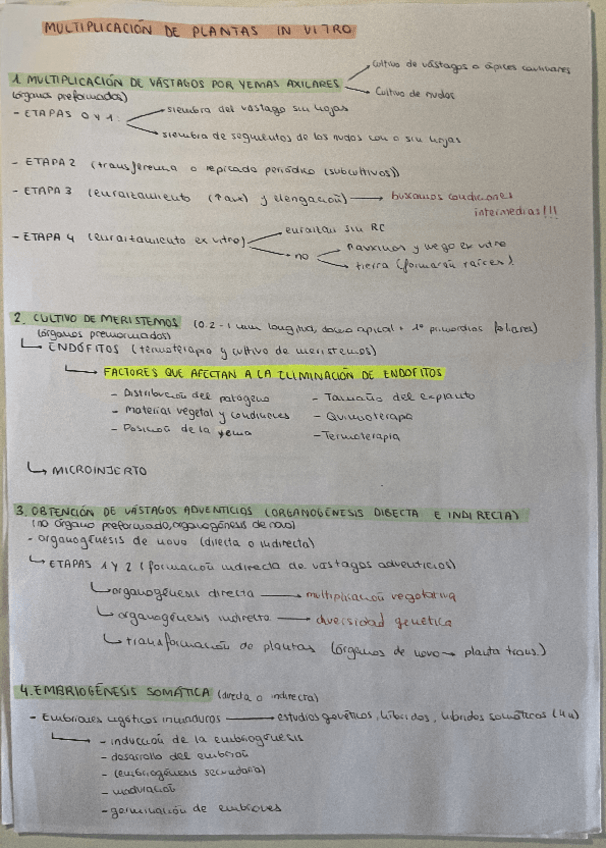 MULTIPLICACIÓN DE PLANTAS IN VITRO
1. MULTIPLICACIÓN DE VÁSTAGOS POR YEMAS AXILARES
cultivo de vástagos o ápices caulinares
Cultivo de nudos
(órganos preformados)
- ETAPAS 0 Y 1:
siembra del vástago sin hojas
siembra de segmentos de los nudos con o sin hojas
- ETAPA 2 (transferencia o repicado periódico (subcultivos))
- ETAPA 3 (enraizamiento (↑aux) y elongación) → buscamos condiciones
intermedias!!!
- ETAPA 4 (enraizamiento ex vitro)
enraizan sin RC
- no
↑auxinas y luego ex vitro
tierra (formarán raíces)
2. CULTIVO DE MERISTEMOS (0.2-1 mm longitud, domo apical + 1º primordios foliares)
(órganos preformados)
ENDÓFITOS (termoterapia y cultivo de meristemos)
FACTORES QUE AFECTAN A LA ELIMINACIÓN DE ENDOFITOS
- Distribución del patógeno
- Tamaño del explanto
- Material vegetal y condiciones
- Quimioterapia
- Posición de la yema
- Termoterapia
MICROINJERTO
3. OBTENCIÓN DE VÁSTAGOS ADVENTICIOS (ORGANOGÉNESIS DIRECTA E INDIRECTA)
(no órgano preformado, organogénesis de novo)
- organogénesis de novo (directa o indirecta)
ETAPAS 1 Y 2 (formación indirecta de vástagos adventicios)
organogénesis directa → multiplicación vegetativa
organogénesis indirecta → diversidad genética
transformación de plantas (órganos de novo → planta trans.)
4. EMBRIOGÉNESIS SOMÁTICA (directa o indirecta)
- Embriones cigóticos inmaduros → estudios genéticos, híbridos, híbridos somáticos (4n)
- inducción de la embriogénesis
- desarrollo del embrión
- (embriogénesis secundaria)
- maduración
- germinación de embriones